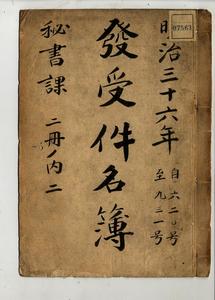 07563
明治三十六年
自六二〇号
至九三一号
發受件名簿
秘書課
二冊ノ内二